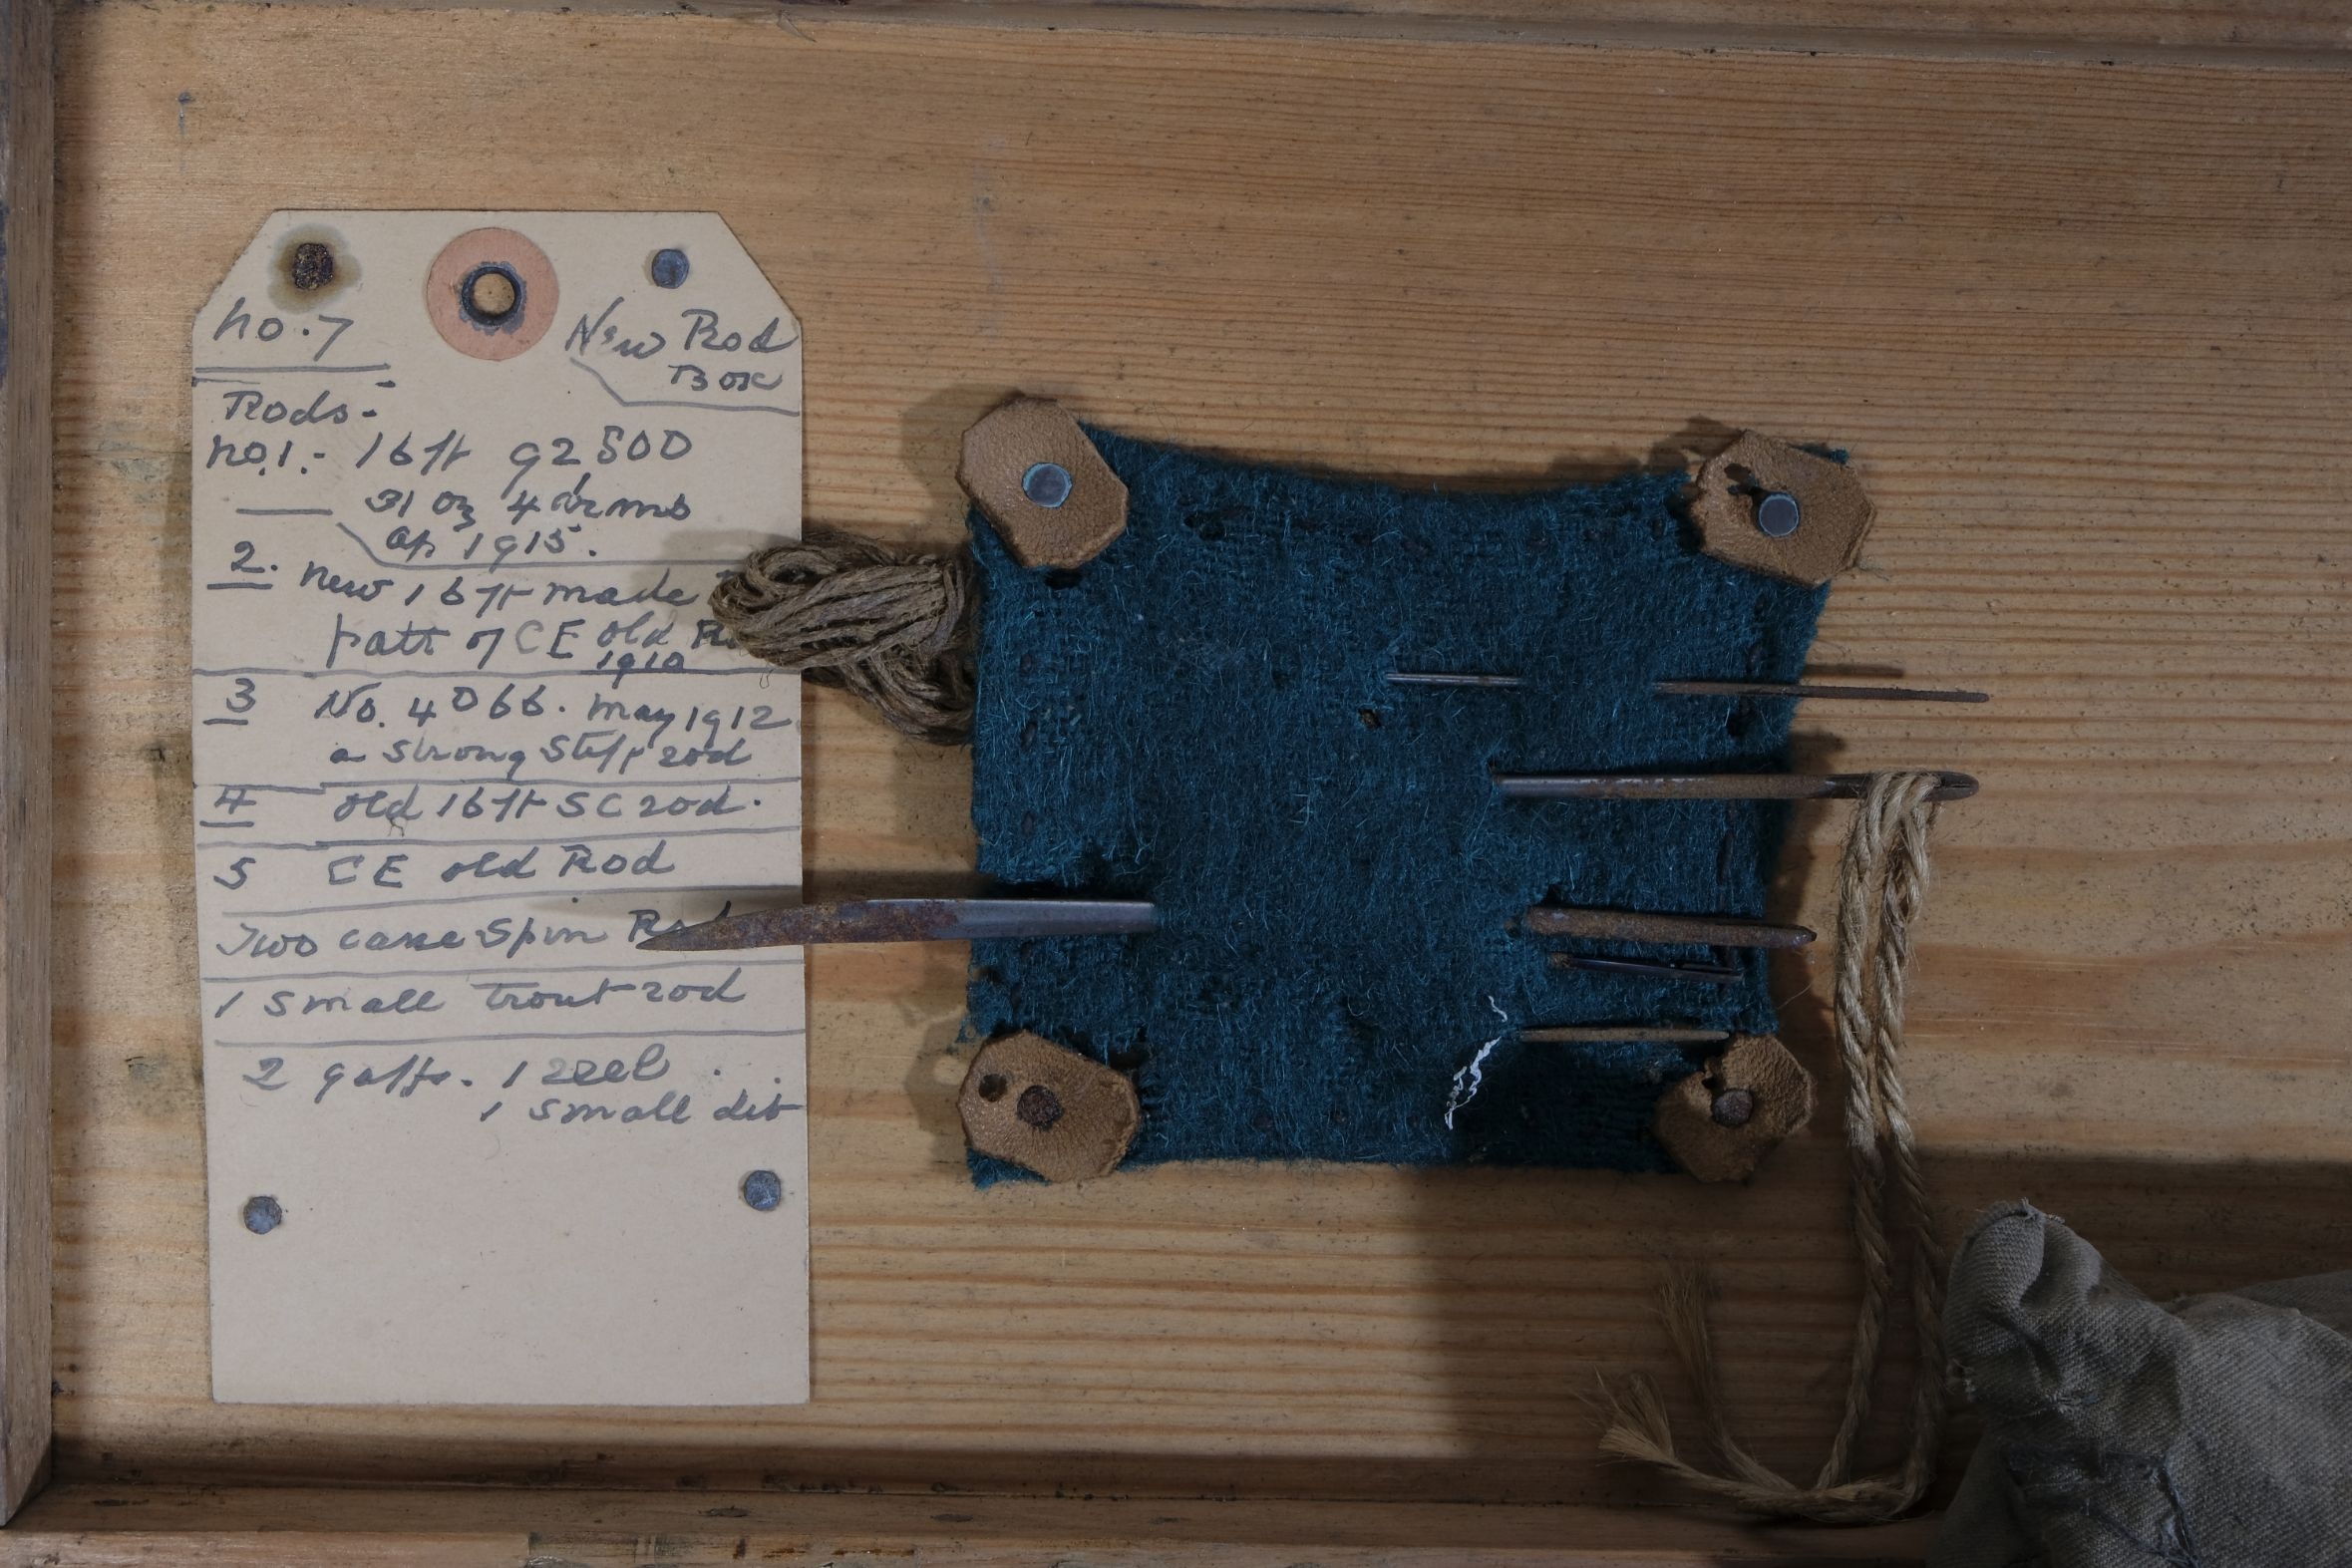 No. 7
New Rod
Box
Rods-
No. 1.- 16 ft 92500
31 oz 4 drms
Ap 1915.
2. New 16 ft made
patt of CE old
1910
3 No. 4066. May 1912
a strong stiff rod
4 old 16 ft SC rod.
5 CE old Rod
Two cane Spin Rod
1 small trout rod
2 gaffs. 1 reel
1 small